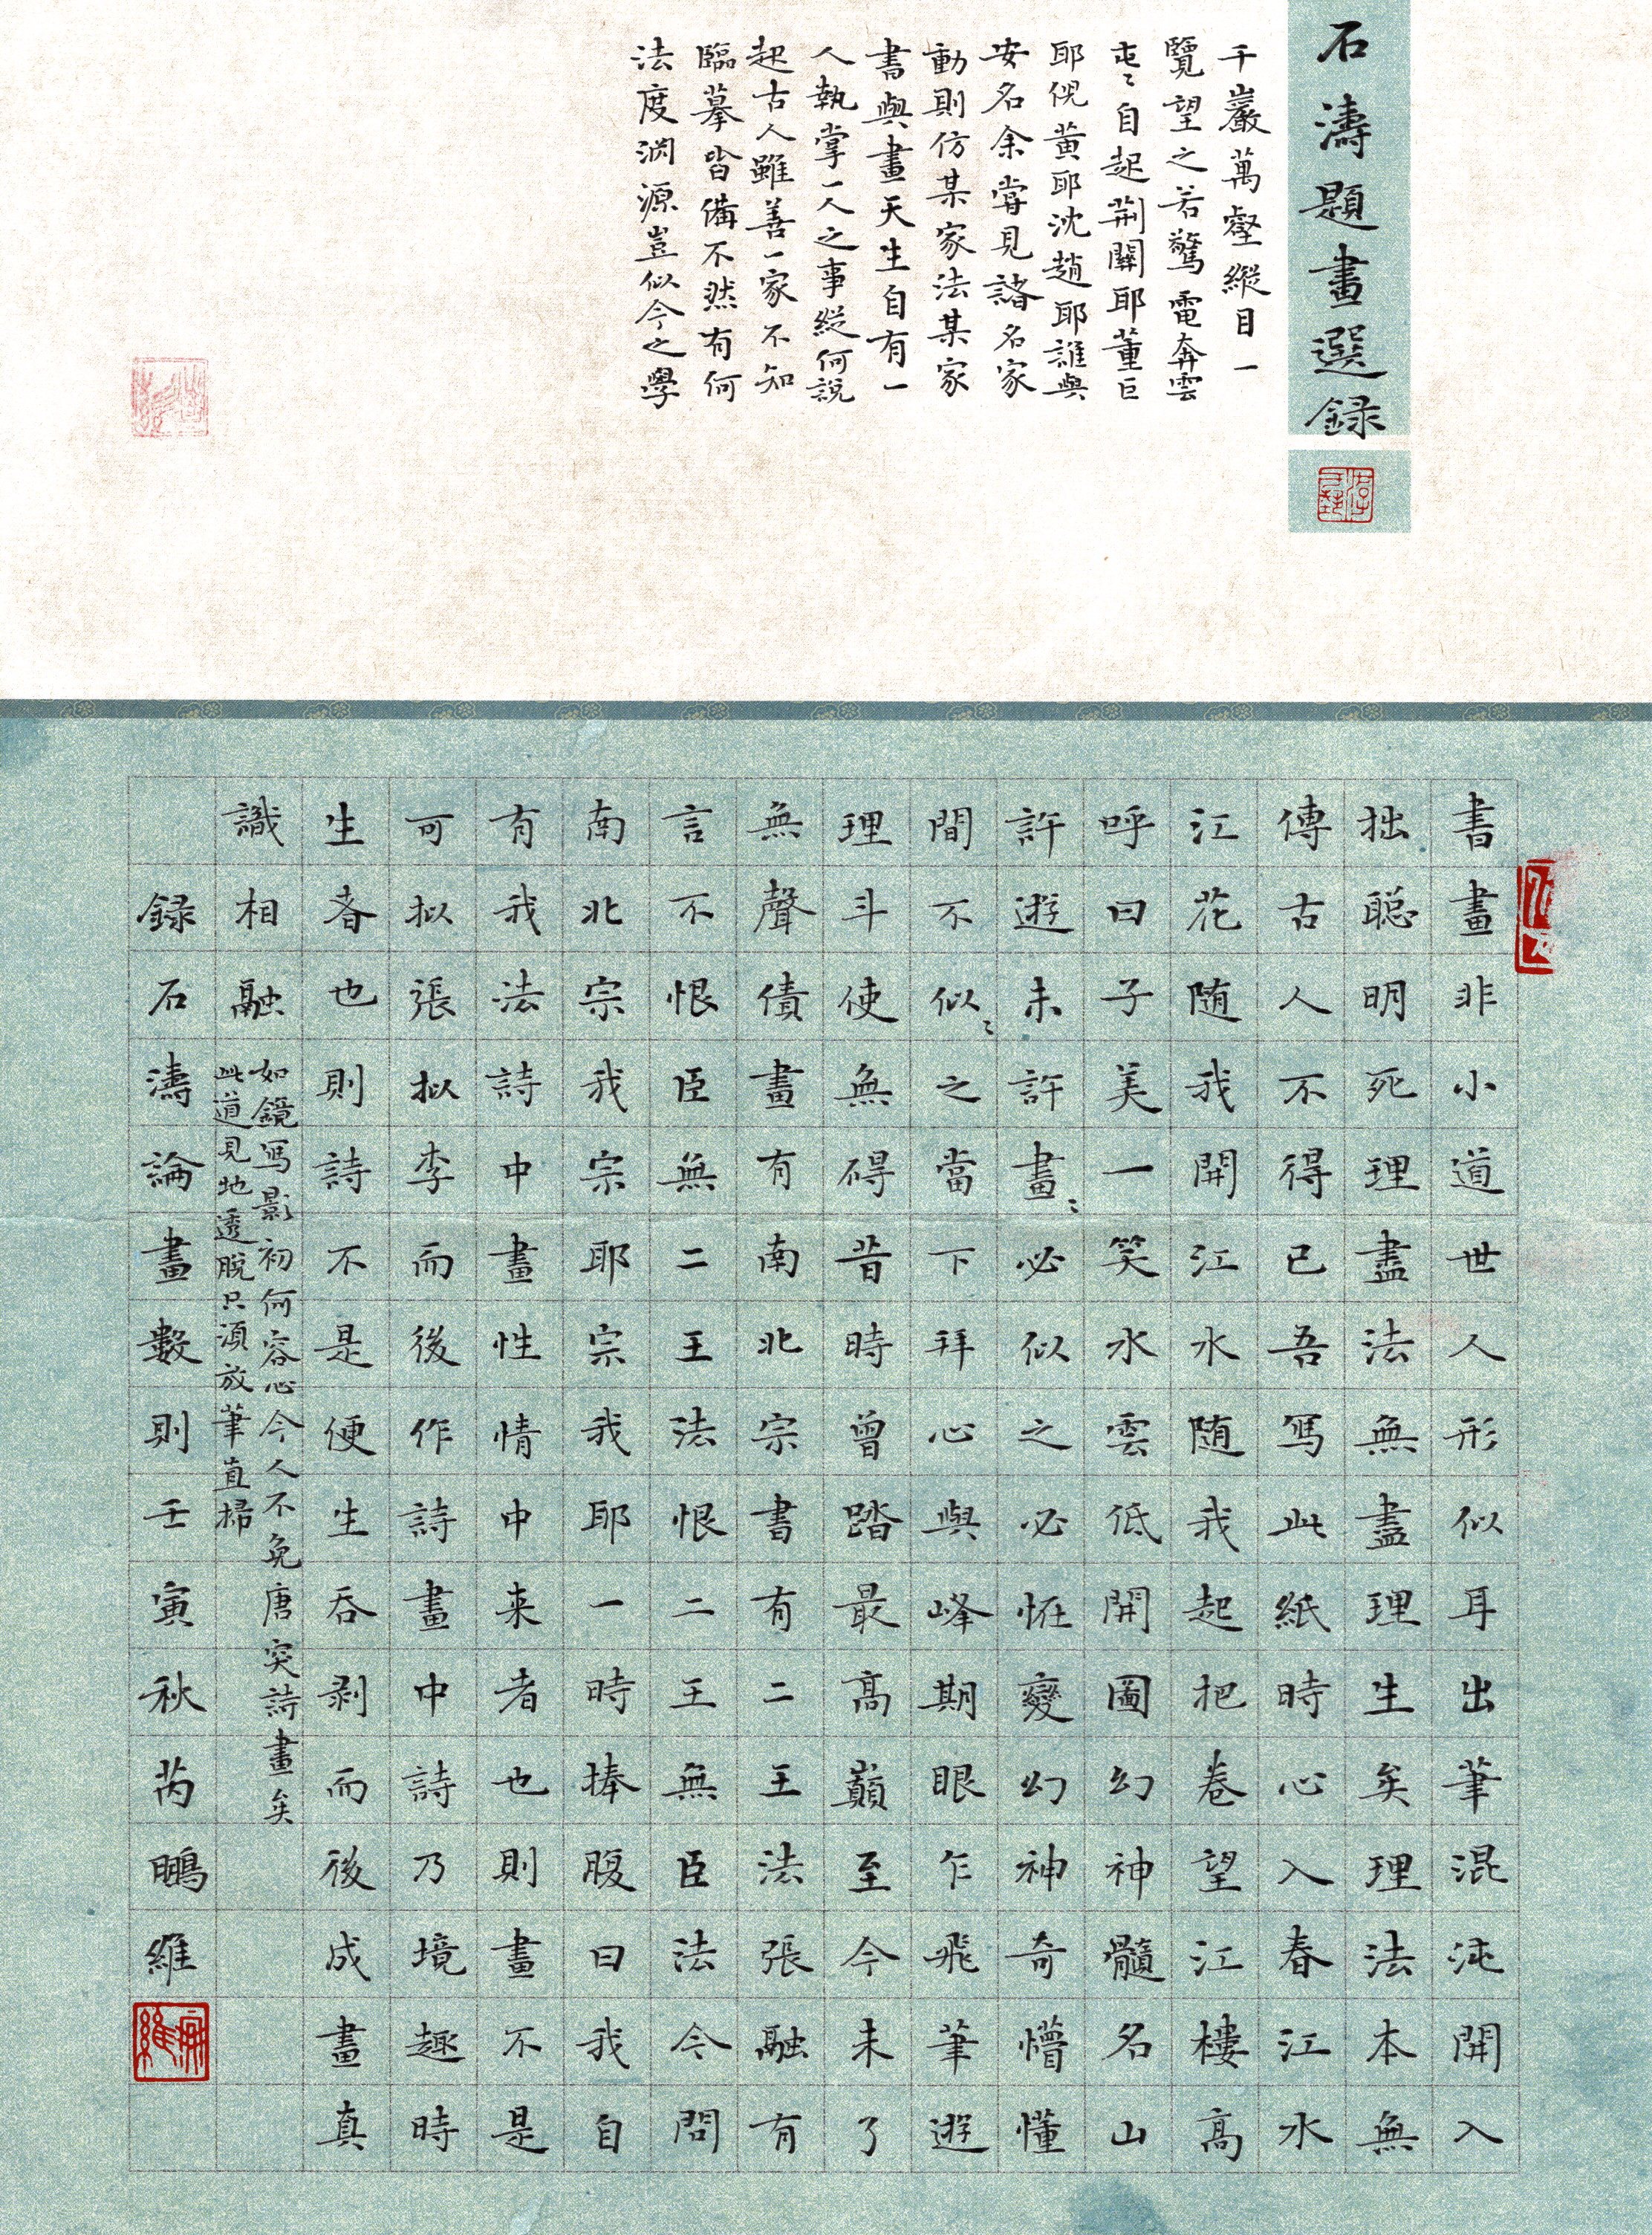 石濤題畫選録
千巖萬壑縱目一
覽望之若驚電奔雲
屯〻自起荆關耶董巨
耶倪黄耶沈趙耶誰與
安名余嘗見諸名家
動則仿某家法某家
書與畫天生自有一
人執掌一人之事縱何說
起古人雖善一家不知
臨摹皆備不然有何
法度淵源豈似今之學
書畫非小道世人形似耳出筆混沌開入
拙聡明死理盡法無盡理生矣理法本無
傳古人不得已吾写此紙時心入春江水
江花随我開江水随我起把卷望江樓高
呼曰子美一笑水雲低開圖幻神髓名山
許遊未許畫〻必似之必恠變幻神奇懵懂
間不似〻之當下拜心與峰期眼乍飛筆遊
理斗使無碍昔時曾踏最高巔至今未了
無聲債畫有南北宗書有二王法張融有
言不恨臣無二王法恨二王無臣法今問
南北宗我宗耶宗我耶一時捧腹曰我自
有我法詩中畫性情中来者也則畫不是
可拟張拟李而後作詩畫中詩乃境趣時
生者也則詩不是便生吞剥而後成畫真
識相融
如鏡写影初何容心今人不免唐突詩畫矣
此道見地透脱只須放筆直掃
録石濤論畫數則壬寅秋芮鵬維